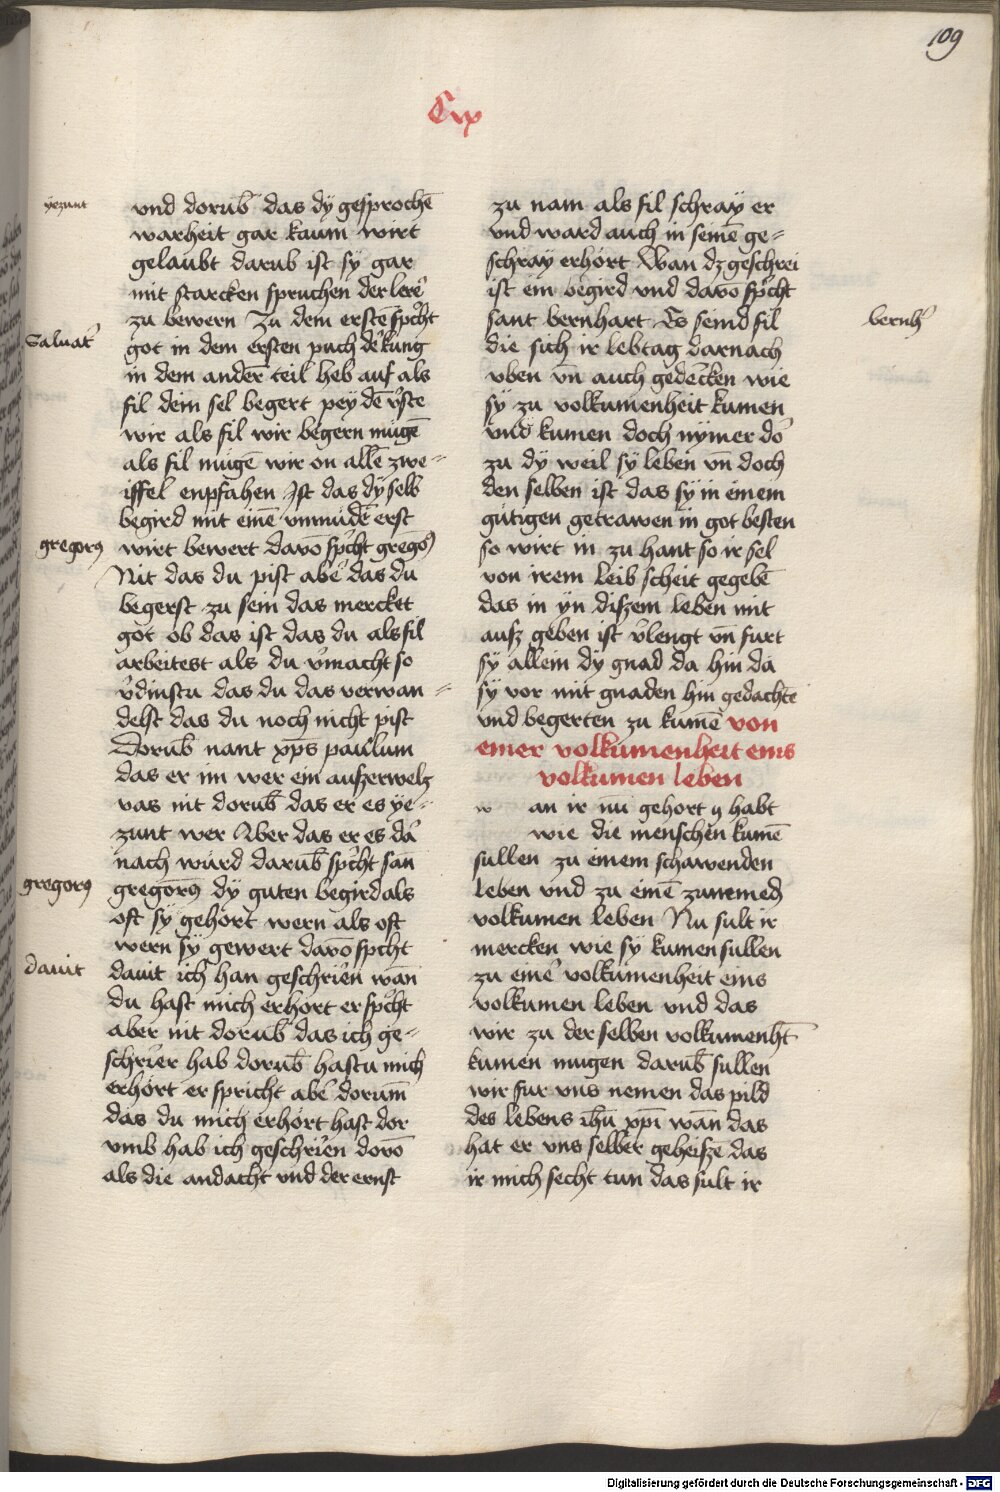 109
Cix
yezunt
und dorub̄ das dÿ gesprochē
warheit gar kaum wirt
gelaubt darub ist sy gar
mit starcken spruchen der lerē
zu bewern Zu dem erstē sp̄cht
Saluat̄
got in dem ersten puch dē kunig
in dem andēr teil heb auf als
fil dein sel begert peÿ dē v̄ste
wir als fil wir begern mugē
als fil mugē wir on allē zwe=
iffel enpfahen Ist das dÿ selb
begird mit einē vnmudē ernst
gregorꝰ
wirt bewert davō sp̄cht gregoꝰ
Nit das du pist abē das du
begerst zu sein das mercket
got ob das ist das du als fil
arbeitest als du v̄macht so
v̄dinstu das du das verwan=
delst das du noch nicht pist
Dorub̄ nant xp̄s paulum
das er im wer ein auszerwelz
vas nit dorub̄ das er es ye=
zunt wer Aber das er es dā
nach wurd darub̄ sp̄cht san
gregorꝰ
gregorꝰ dÿ guten begird als
oft sÿ gehort wern als oft
wern sÿ gewert davō sp̄cht
dauit
dauit ich han geschrien wan
du hast mich erhort er sp̄cht
aber nit dorub̄ das ich ge=
schrier hab dorub̄ hastu mich
erhort er spricht abē dorum̄
das du mich erhort hast dor
vmb hab ich geschrien dovō
als die andacht vnd der ernst
zu nam als fil schraÿ er
vnd ward auch in seinē ge=
schraÿ erhort Wan dz geschrei
ist ein begird vnd davō sp̄cht
sant bernhart Es seind fil
bernh̄
die sich ir lebtag darnach
vben vn̄ auch gedēcken wie
sy zu volkumenheit kumen
vnd kumen doch nÿmer do
zu dÿ weil sÿ leben vn̄ doch
den selben ist das sÿ in einem
gutigen getrawen in got besten
so wirt in zu hant so ir sel
von irem leib scheit gegebē
das in ÿn diszem leben nit
ausz geben ist v̄lengt vn̄ furt
sÿ allein dÿ gnad da hin da
sÿ vor mit gnaden hin gedachtē
vnd begerten zu kumē von
einer volkumenheit eins
volkumen leben
w an ir nu gehort ꝯ habt
wie die menschen kumē
sullen zu einem schawenden
leben vnd zu einē zunemed
volkumen leben Nu sult ir
mercken wie sÿ kumen sullen
zu einē volkumenheit eins
volkumen leben vnd das
wir zu der selben volkumenh̄t
kumen mugen darub̄ sullen
wir fur vns nemen das pild
des lebens ih̄u xp̄i wan das
hat er vns selber geheiszē das
ir mich secht tun das sult ir
Digitalisierung gefördert durch die Deutsche Forschungsgemeinschaft - DFG